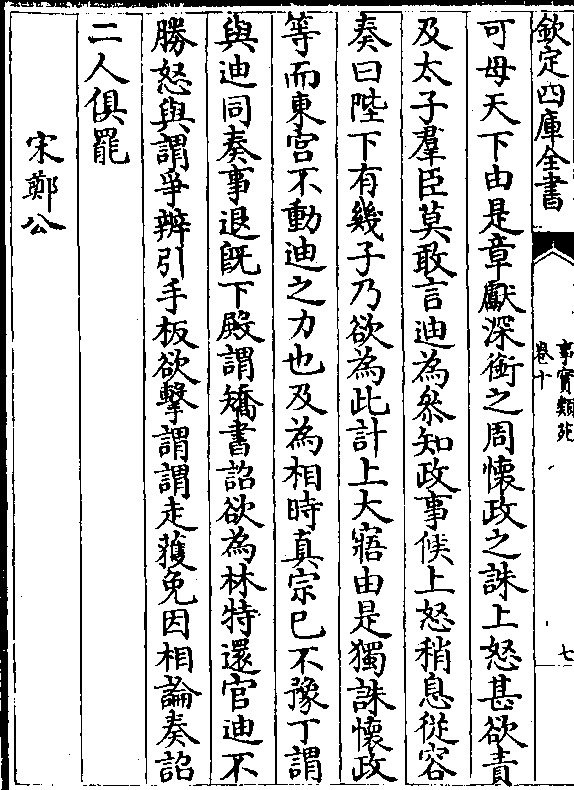 欽定四庫全書
事實類苑
卷十
七
可母天下由是章獻深銜之周懷政之誅上怒甚欲責
及太子羣臣莫敢言迪為叅知政事候上怒稍息從容
奏曰陛下有幾子乃欲為此計上大寤由是獨誅懷政
等而東宫不動迪之力也及為相時真宗已不豫丁謂
與迪同奏事退既下殿謂矯書詔欲為林特還官迪不
勝怒與謂爭辨引手板欲擊謂謂走獲免因相論奏詔
二人俱罷
宋鄭公